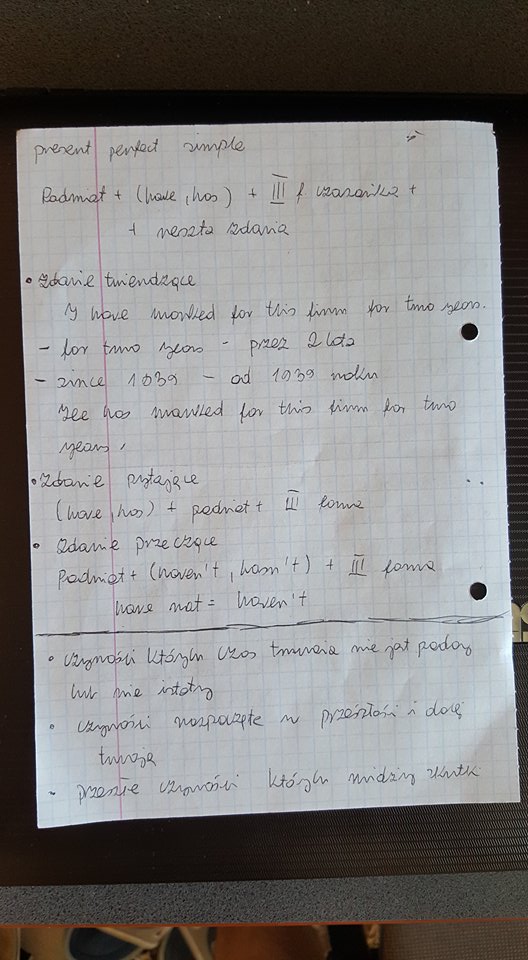 present perfect simple
Podmiot + (have, has) + III f czasownika +
+ reszta zdania
• Zdanie twierdzące
I have worked for this firm for two years.
- for two years - przez 2 lata
- since 1939 - od 1939 roku
He has worked for this firm for two
years.
• Zdanie pytające
(have, has) + podmiot + III forma
• Zdanie przeczące
Podmiot + (haven't, hasn't) + III forma
have not = haven't
• czynności których czas trwania nie jest podany
lub nie istotny
• czynności rozpoczęte w przeszłości i dalej
trwają
- przeszłe czynności których widzimy skutki